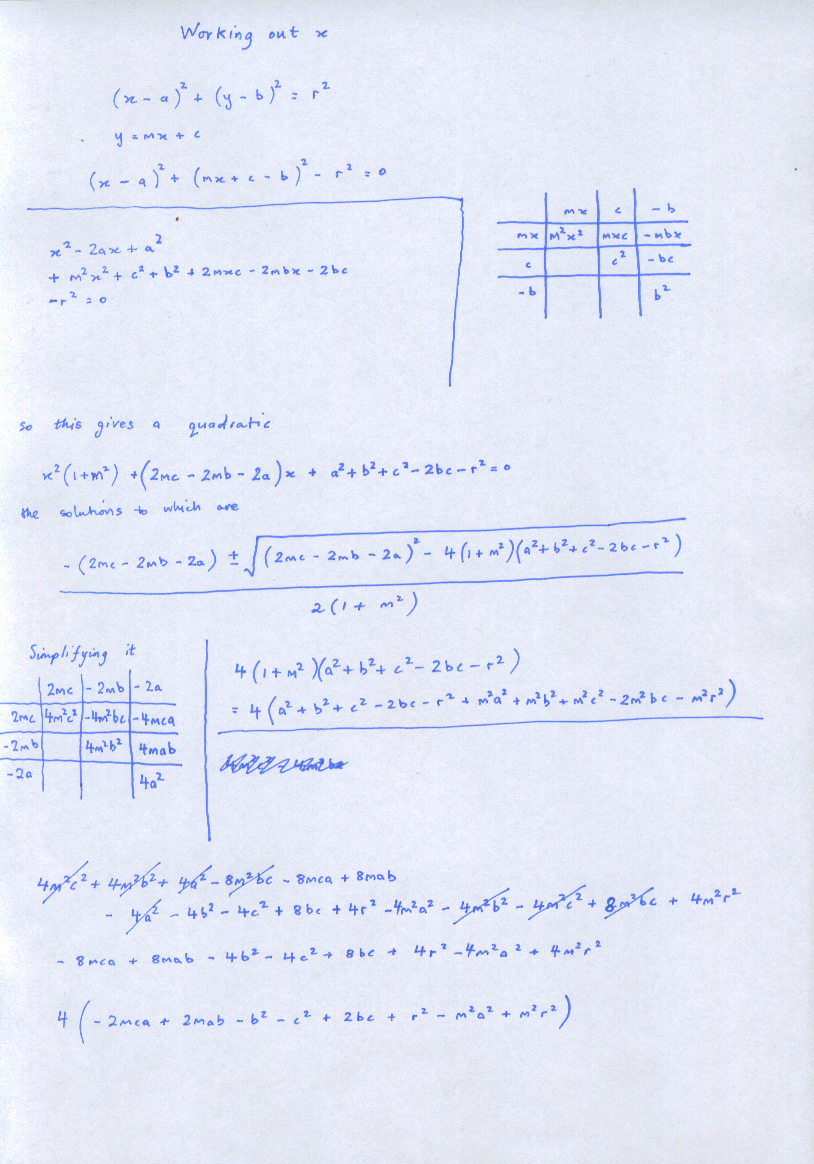 Working out x
(x - a)² + (y - b)² = r²
y = mx + c
(x - a)² + (mx + c - b)² - r² = 0
x² - 2ax + a²
+ m²x² + c² + b² + 2mxc - 2mbx - 2bc
- r² = 0
mx c - b
mx m²x² mxc - mbx
c c² - bc
- b b²
so this gives a quadratic
x²(1+m²) + (2mc - 2mb - 2a)x + a² + b² + c² - 2bc - r² = 0
the solutions to which are
- (2mc - 2mb - 2a) ± √(2mc - 2mb - 2a)² - 4(1 + m²)(a² + b² + c² - 2bc - r²)
2(1 + m²)
Simplifying it
2mc - 2mb - 2a
2mc 4m²c² -4m²bc -4mca
-2mb 4m²b² 4mab
-2a 4a²
4(1 + m²)(a² + b² + c² - 2bc - r²)
= 4(a² + b² + c² - 2bc - r² + m²a² + m²b² + m²c² - 2m²bc - m²r²)
4m²c² + 4m²b² + 4a² - 8m²bc - 8mca + 8mab
- 4a² - 4b² - 4c² + 8bc + 4r² - 4m²a² - 4m²b² - 4m²c² + 8m²bc + 4m²r²
- 8mca + 8mab - 4b² - 4c² + 8bc + 4r² - 4m²a² + 4m²r²
4(- 2mca + 2mab - b² - c² + 2bc + r² - m²a² + m²r²)